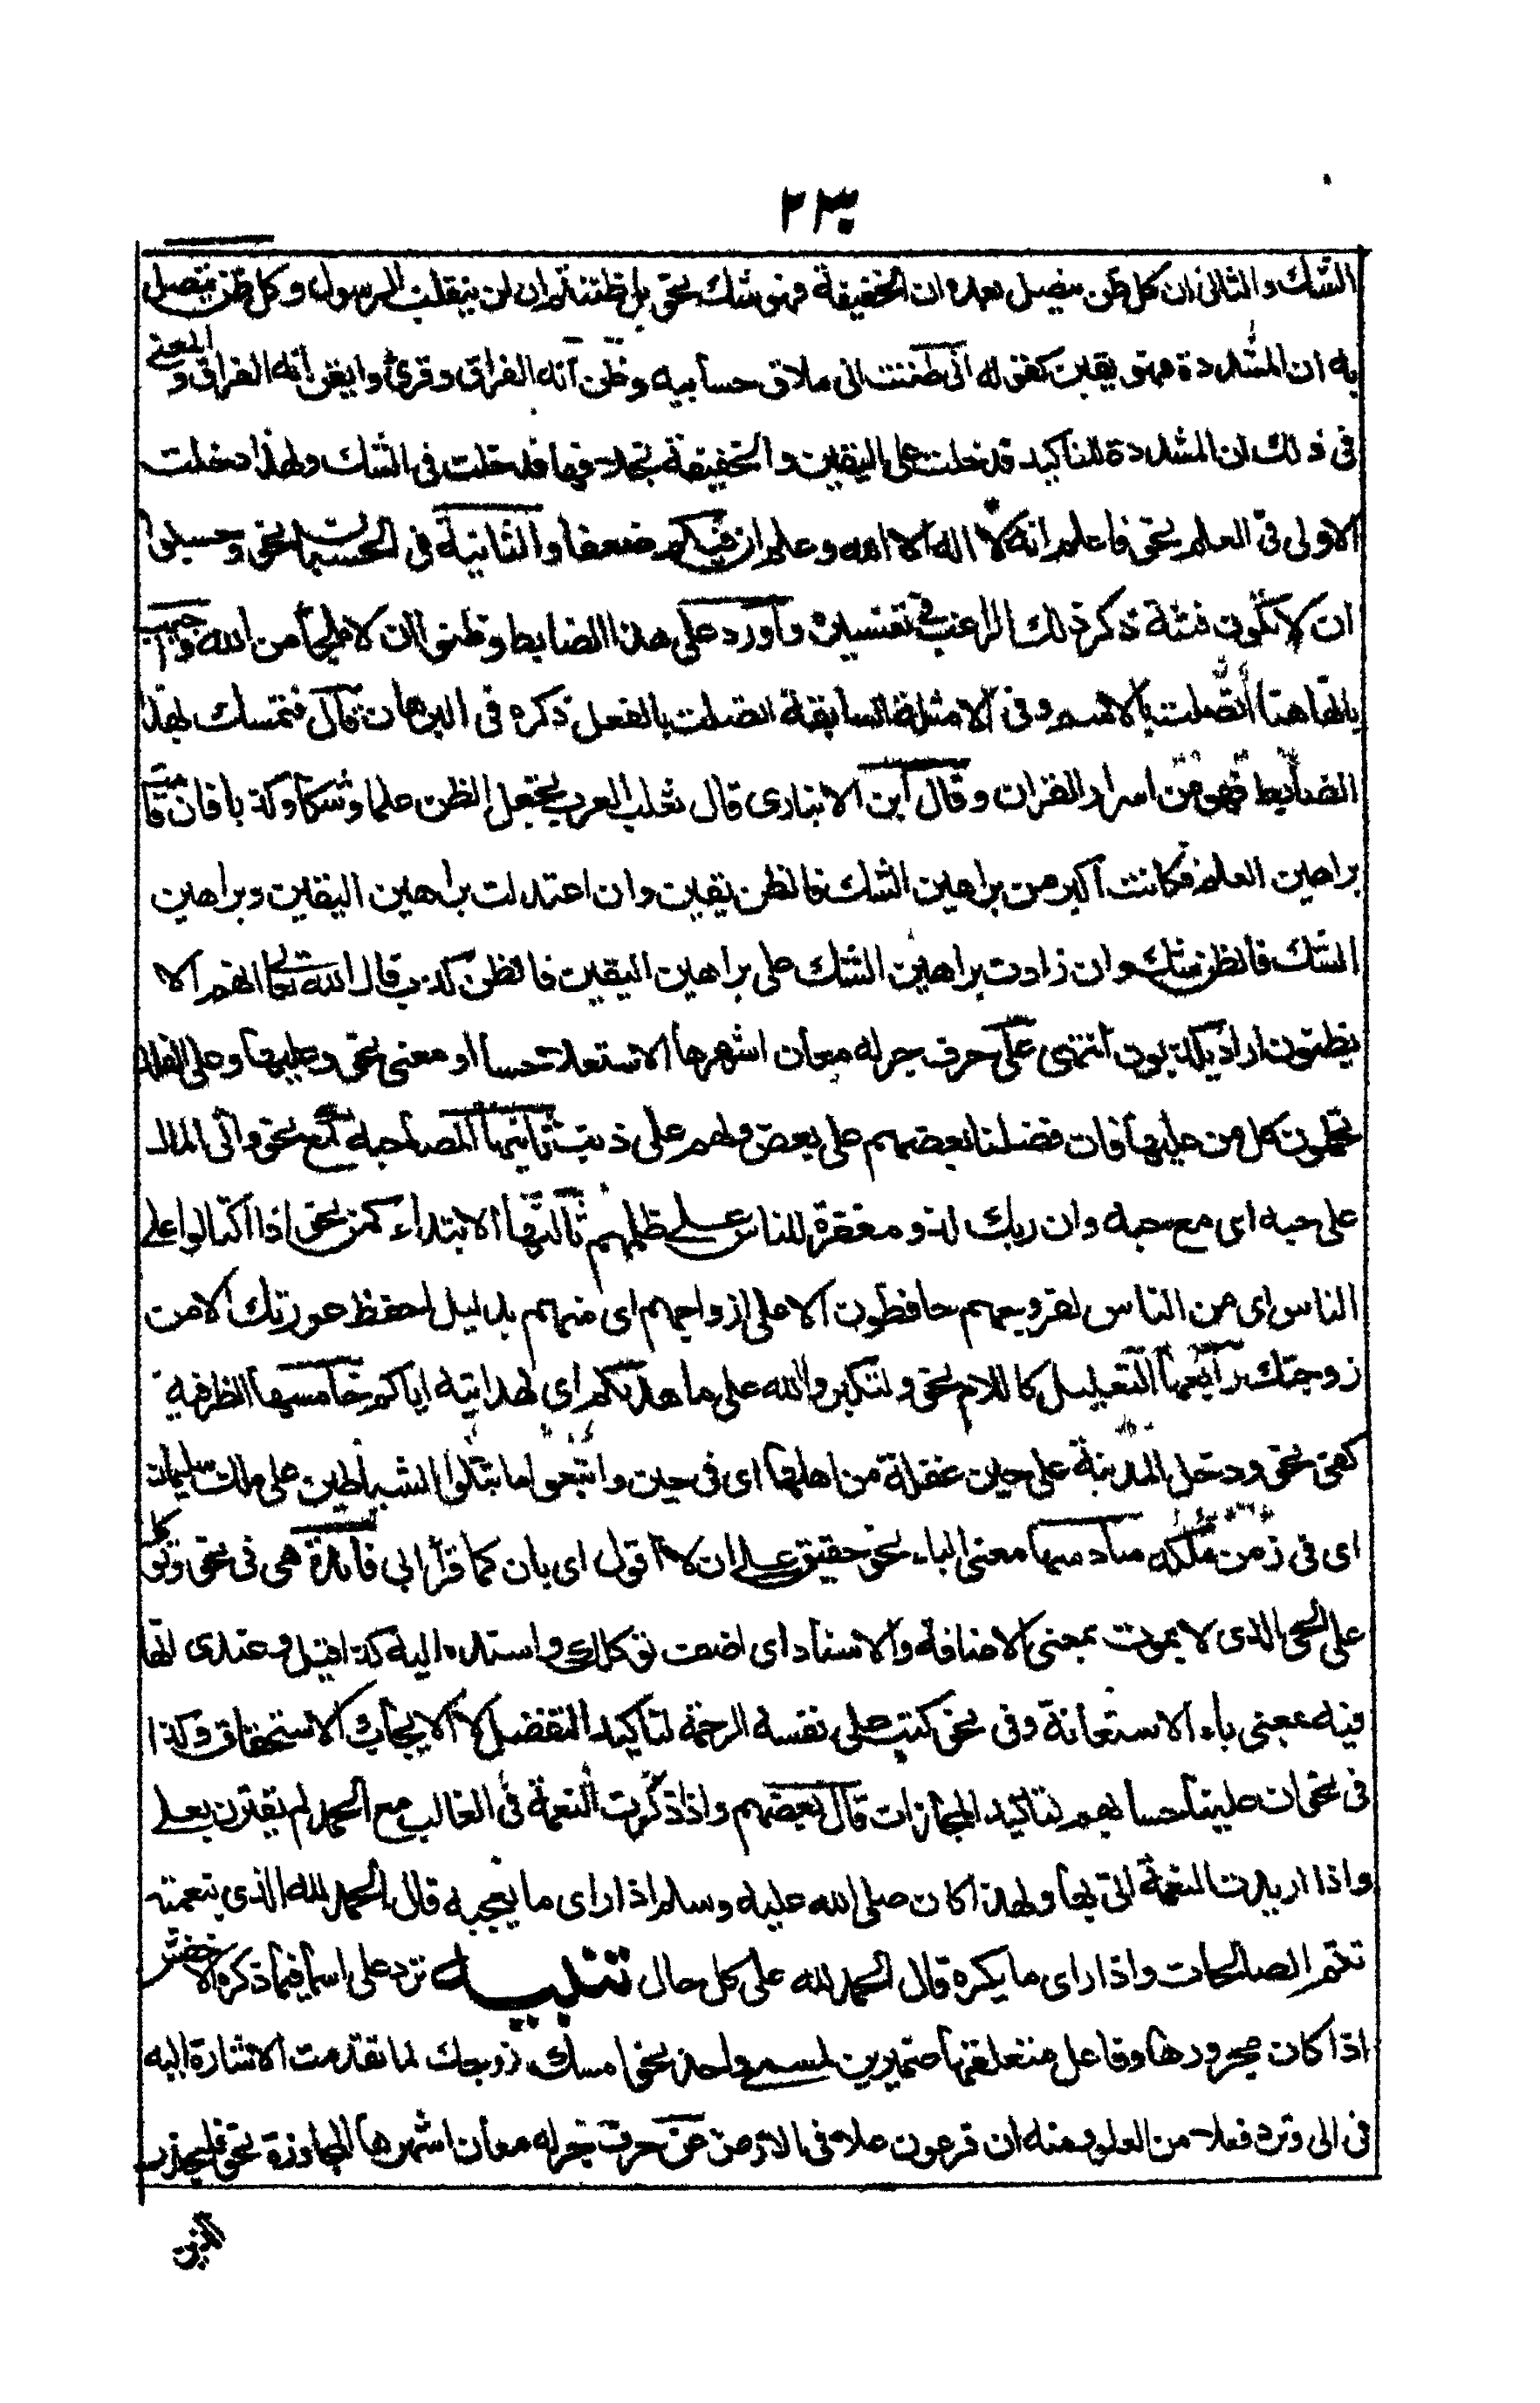 ٢٣٠
الشك والثانى ان كل ظن يتصل بعده ان الخفيفة فهو شك نحو بل ظننتم ان لن ينقلب الرسول وكل ظن يتصل
به ان المشددة فهو يقين كقوله انى ظننت انى ملاق حسابيه وظن أنه الفراق وقرئ وايقن أنه الفراق والمعنى
فى ذلك ان المشددة للتأكيد فدخلت على اليقين والخفيفة بخلافها فدخلت فى الشك ولهذا دخلت
الاولى فى العلم نحو فاعلم انه لا اله الا الله وعلم ان فيكم ضعفا والثانية فى الحسبان نحو وحسبوا
ان لا تكون فتنة ذكر ذلك الراغب فى تفسيره وأورد على هذا الضابط وظنوا ان لا ملجأ من الله واجيب
بانها هنا اتصلت بالاسم وفى الامثلة السابقة اتصلت بالفعل ذكره فى البرهان قال فتمسك بهذا
الضابط فهو من اسرار القران وقال ابن الانبارى قال ثعلب العرب تجعل الظن علما وشكا وكذبا فان قامت
براهين العلم فكانت أكبر من براهين الشك فالظن يقين وان اعتدلت براهين اليقين وبراهين
الشك فالظن شك وان زادت براهين الشك على براهين اليقين فالظن كذب قال الله تعالى ان هم الا
يظنون اراد يكذبون انتهى على حرف جر له معان اشهرها الاستعلاء حسا او معنى نحو وعليها وعلى الفلك
تحملون كل من عليها فان فضلنا بعضهم على بعض ولهم على ذنب ثانيها المصاحبة كمع نحو واتى المال
على حبه اى مع حبه وان ربك لذو مغفرة للناس على ظلمهم ثالثها الابتداء كمن نحو اذا اكتالوا على
الناس اى من الناس لفروجهم حافظون الا على ازواجهم اى منهم بدليل احفظ عورتك الا من
زوجتك رابعها التعليل كاللام نحو ولتكبروا الله على ما هدىكم اى لهدايته اياكم خامسها الظرفية
كفى نحو ودخل المدينة على حين غفلة من اهلها اى فى حين واتبعوا ما تتلوا الشياطين على ملك سليمان
اى فى زمن ملكه سادسها معنى الباء نحو حقيق على ان لا أقول اى بان كما قرأ ابى فائدة هى فى نحو وتوكل
على الحى الذى لا يموت بمعنى الاضافة والاسناد اى اضف توكلك واسنده اليه كذا قيل وعندى انها
فيه بمعنى باء الاستعانة وفى نحو كتب على نفسه الرحمة لتأكيد التفضل لا الايجاب والاستحقاق وكذا
فى نحو ان علينا حسابهم لتأكيد المجازات قال بعضهم واذا ذكرت النعمة فى الغالب مع الحمد لم يقترن بعلى
واذا اريدت النعمة اتى بها ولهذا كان صلى الله عليه وسلم اذا راى ما يعجبه قال الحمد لله الذى بنعمته
تتم الصالحات واذا راى ما يكره قال الحمد لله على كل حال تنبيه ترد على اسما فيما ذكره الاخفش
اذا كان مجرورها وفاعل متعلقها ضميرين لمسمى واحد نحو امسك زوجك لما تقدمت الاشارة اليه
فى الى وترد فعلا من العلو ومنه ان فرعون علا فى الارض عن حرف جر له معان اشهرها المجاوزة نحو فليحذر
الذين